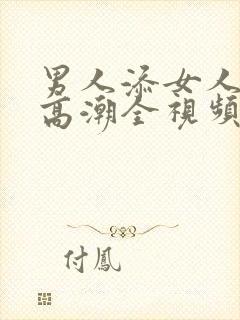 男人添女人
高潮全視頻
付鳳